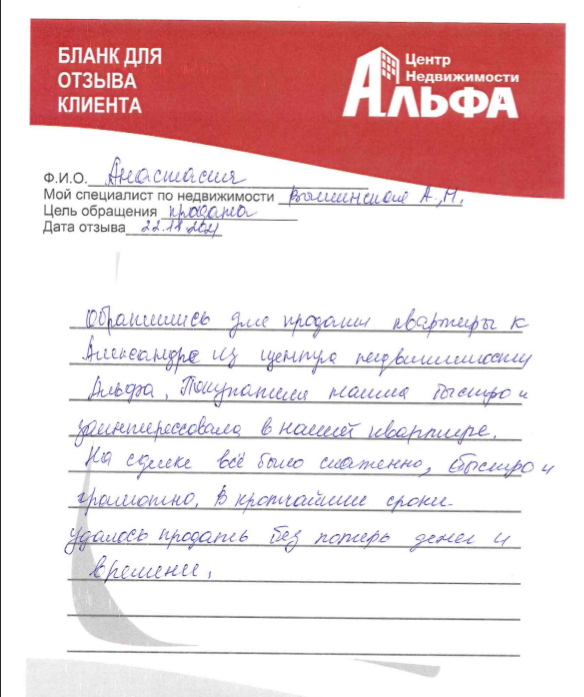 БЛАНК ДЛЯ
ОТЗЫВА
КЛИЕНТА
Центр
Недвижимости
АЛЬФА
Ф.И.О. Анастасия
Мой специалист по недвижимости А.М.
Цель обращения продажа
Дата отзыва 2021
Обратились для продажи квартиры к
Александре из центра недвижимости
Альфа. Покупателя нашла быстро и
заинтересовала в нашей квартире.
На сделке всё было слаженно, быстро и
грамотно. В кротчайшие сроки
удалось продать без потерь денег и
времени.